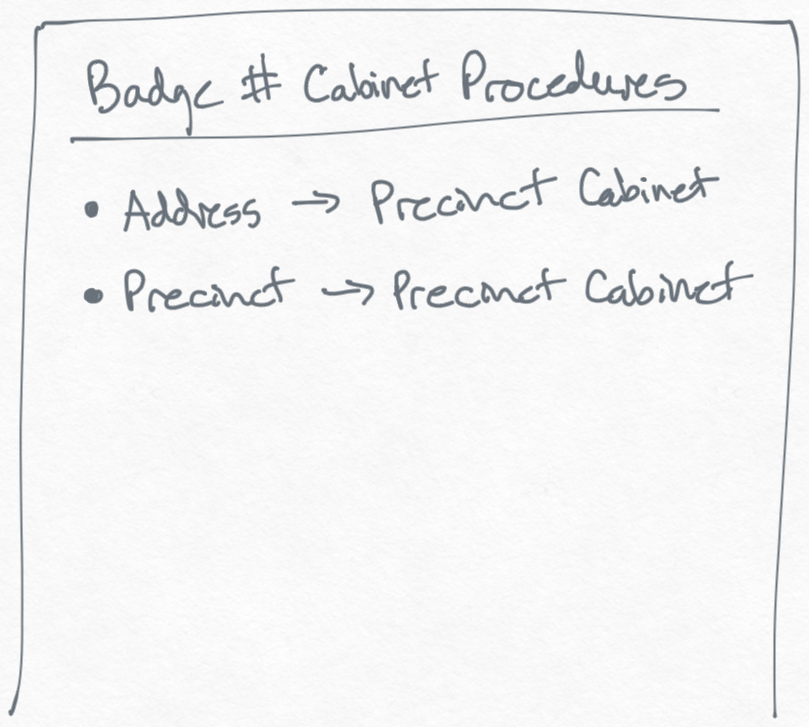 Badge # Cabinet Procedures
• Address → Precinct Cabinet
• Precinct → Precinct Cabinet